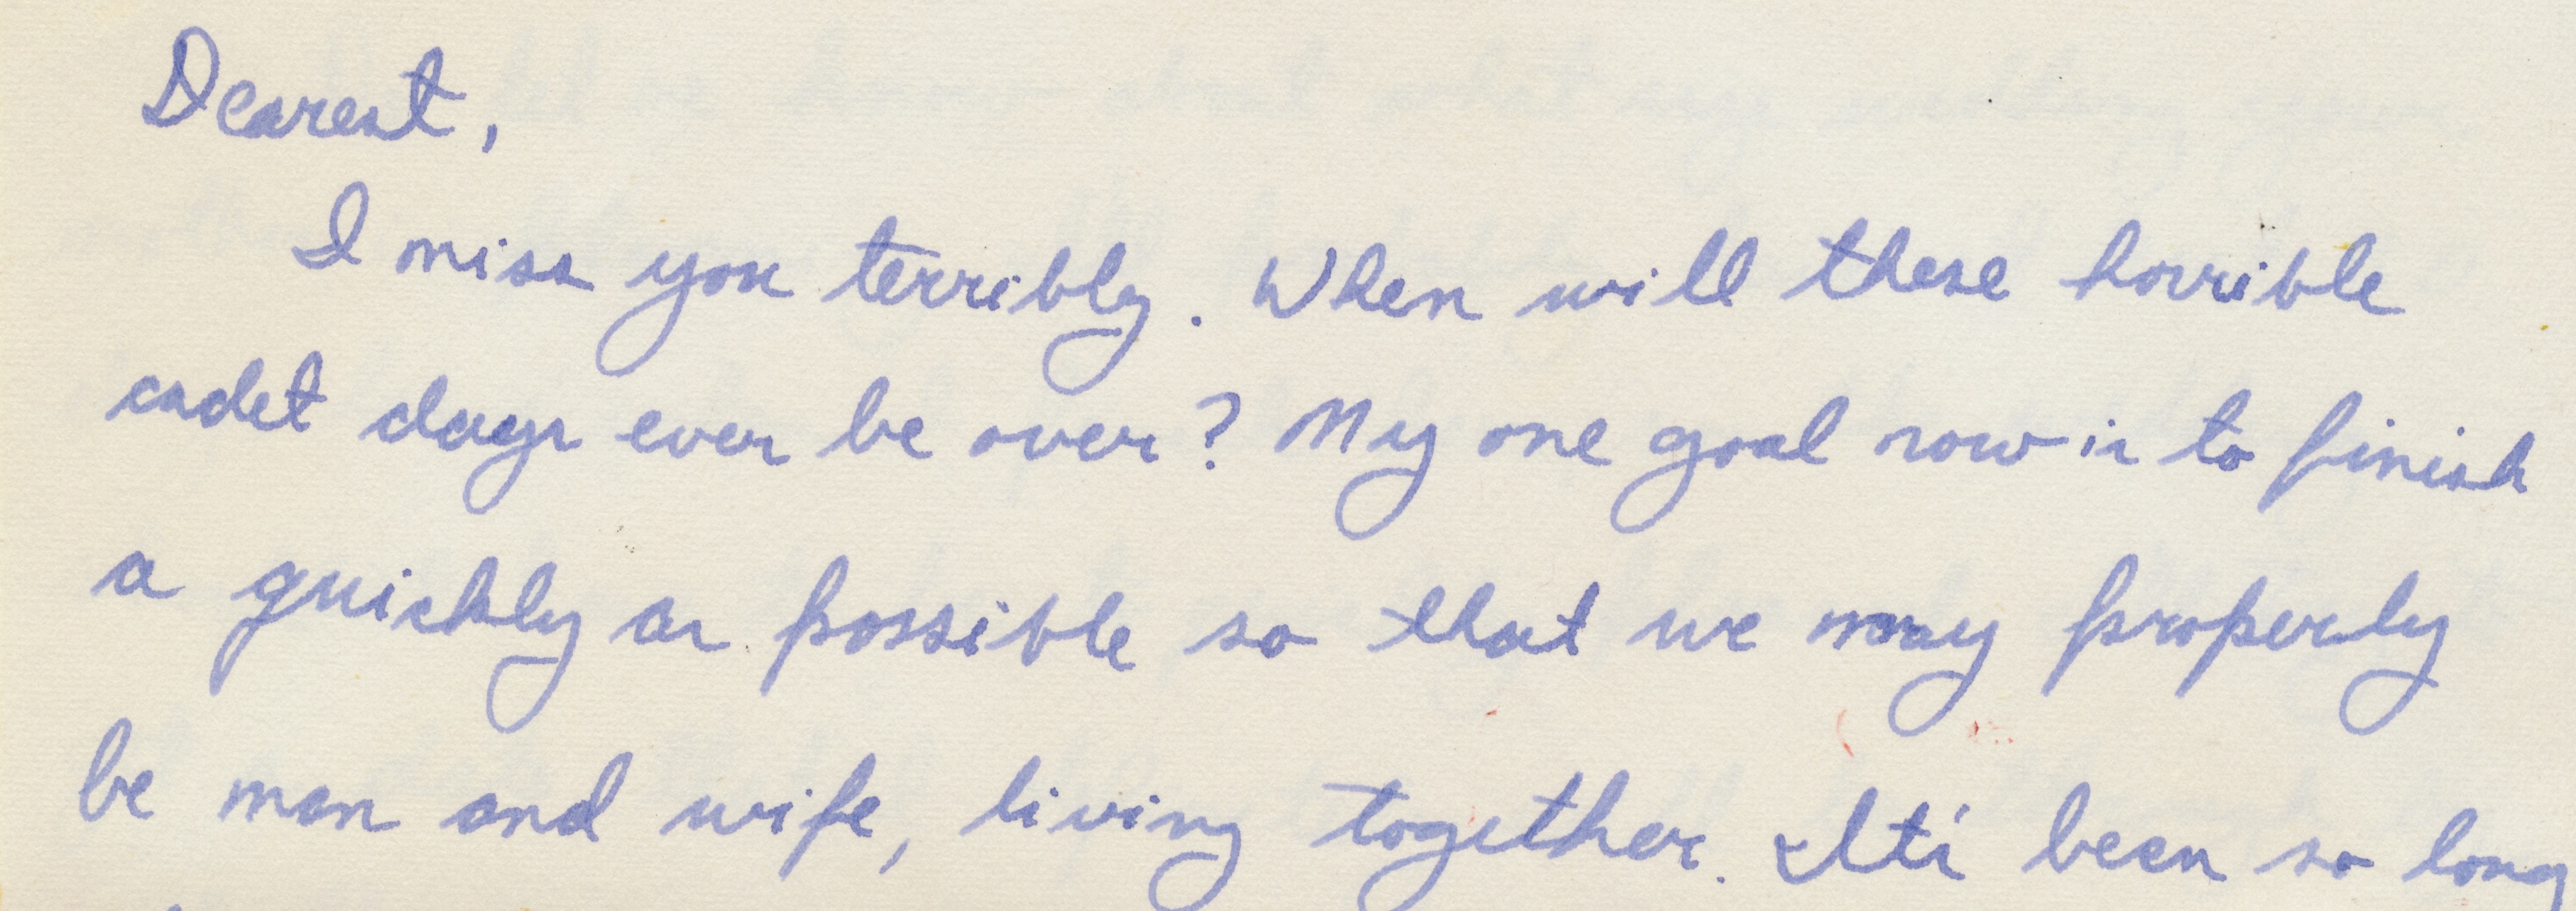 Dearest,
I miss you terribly. When will these horrible
cadet days ever be over? My one goal now is to finish
a quickly as possible so that we may properly
be man and wife, living together. It's been so long